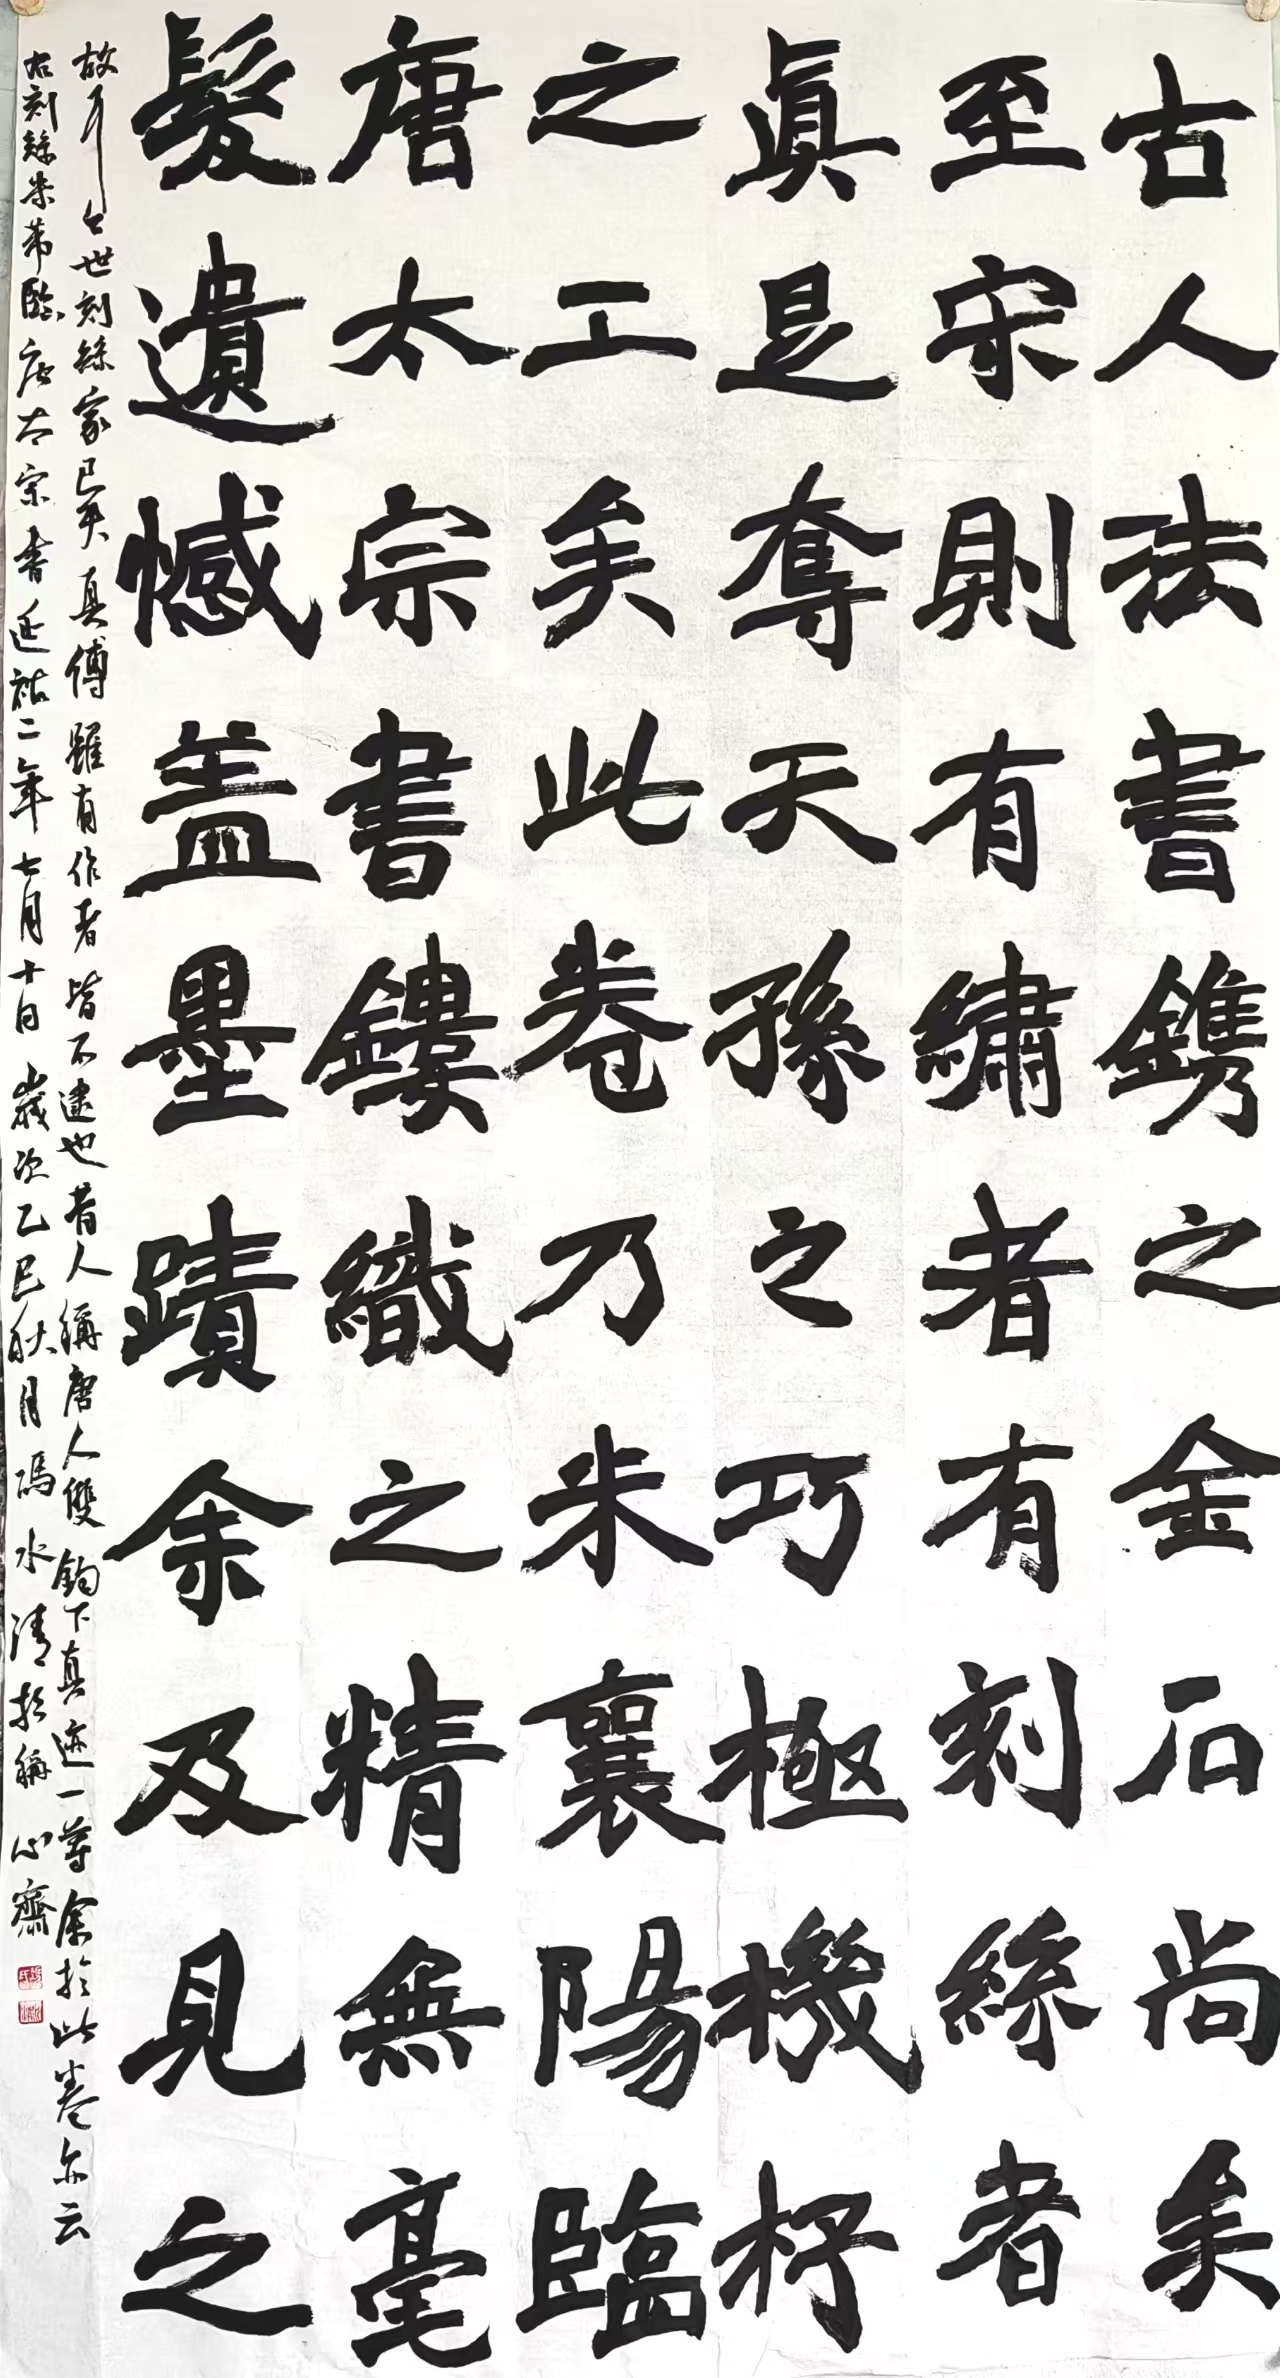 古人法書鐫之金石尚矣
至宋則有繡者有刻絲者
眞是奪天孫之巧極機杼
之工矣此卷乃米襄陽臨
唐太宗書鏤織之精無毫
髮遺憾盖墨蹟余及見之
故耳今世刻絲家已失真傳雖有作者皆不逮也昔人稱唐人雙鈎下真迹一等余於此卷亦云
右刻絲米芾臨唐太宗書延祐二年七月十日歲次乙巳秋月馮水清於稱心齋